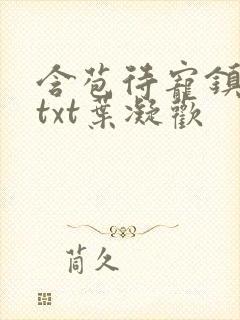 含苞待寵鎮
txt葉凝歡
茼久